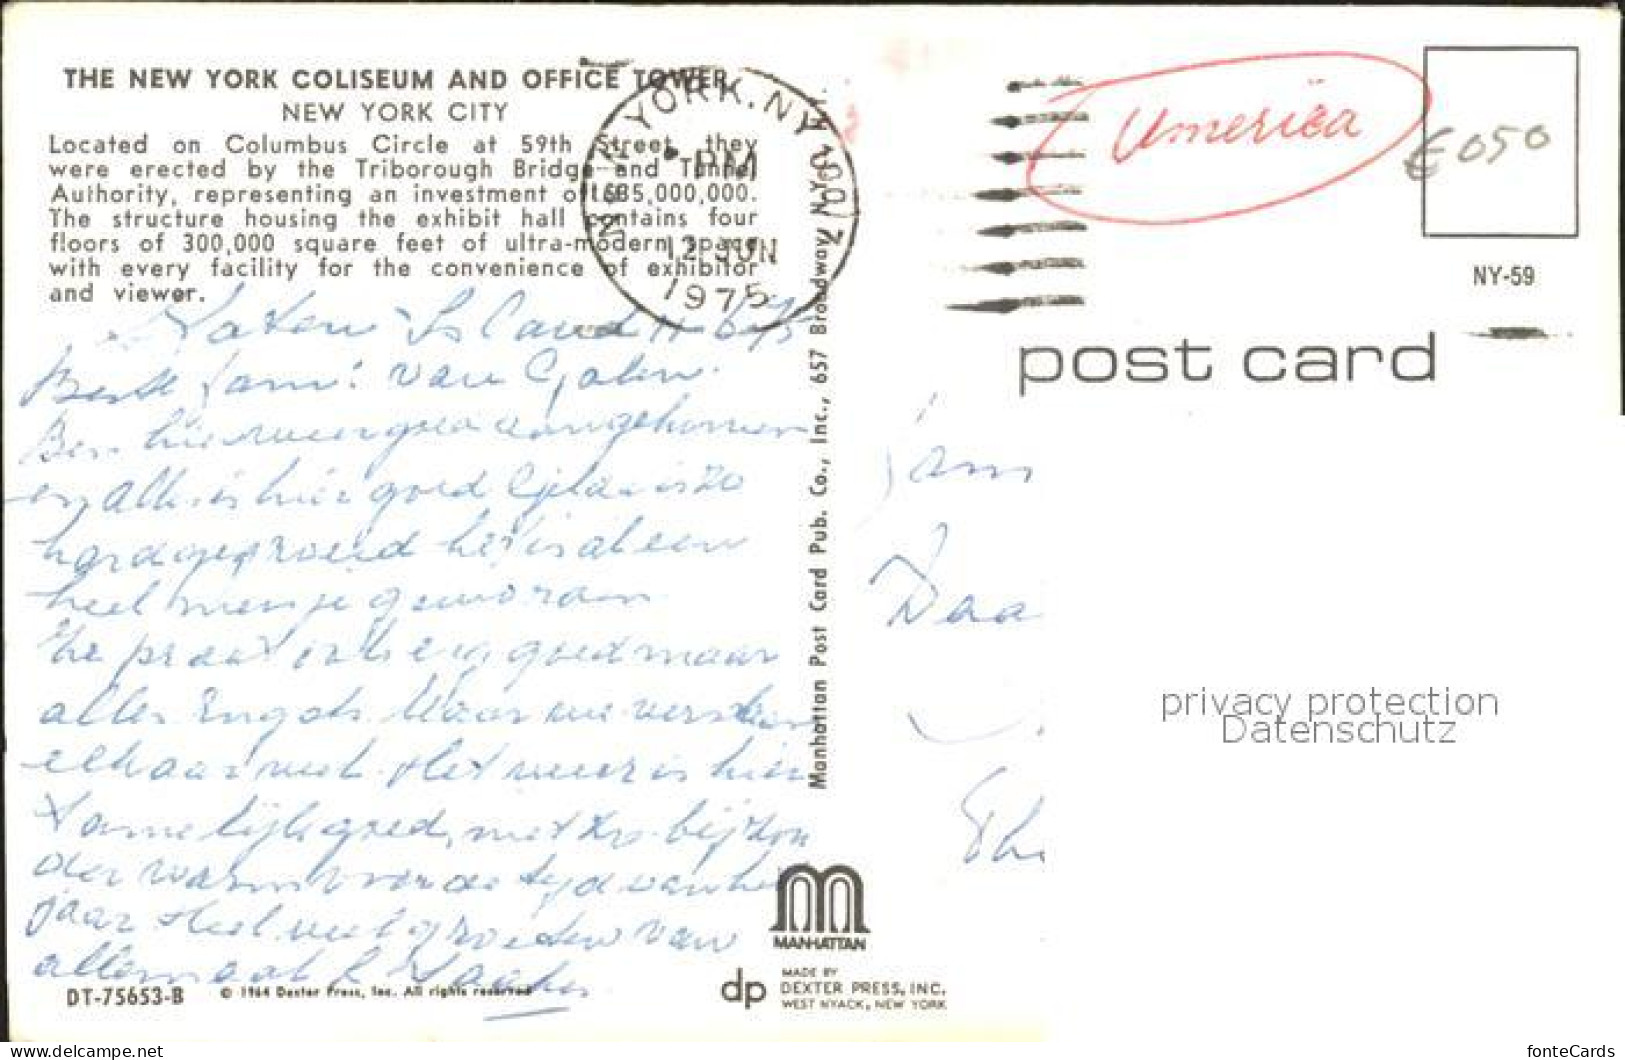 THE NEW YORK COLISEUM AND OFFICE TOWER
NEW YORK CITY
Located on Columbus Circle at 59th Street, they
were erected by the Triborough Bridge and Tunnel
Authority, representing an investment of $35,000,000.
The structure housing the exhibit hall contains four
floors of 300,000 square feet of ultra-modern space
with every facility for the convenience of exhibitor
and viewer.
NEW YORK, NY
PM
12 JUN
1975
America
€050
NY-59
post card
Staten Island 11-6-75
Beste fam: van Galen.
Ben hier weer goed aangekomen
en alles is hier goed is zo
hard gegroeid het is al een
heel mensje geworden
ze praat ook erg goed maar
alles Engels. Maar we verstaan
elkaar wel. Het weer is hier
tamelijk goed, niet zo bijzon
der warm voor de tijd van het
jaar. Heel veel groeten van
allemaal
Manhattan Post Card Pub. Co., Inc., 657 Broadway, N.Y., N.Y. 10012
fam
Daa
Th
privacy protection
Datenschutz
MANHATTAN
DT-75653-B
© 1964 Dexter Press, Inc. All rights reserved
dp
MADE BY
DEXTER PRESS, INC.
WEST NYACK, NEW YORK
www.delcampe.net
fonteCards